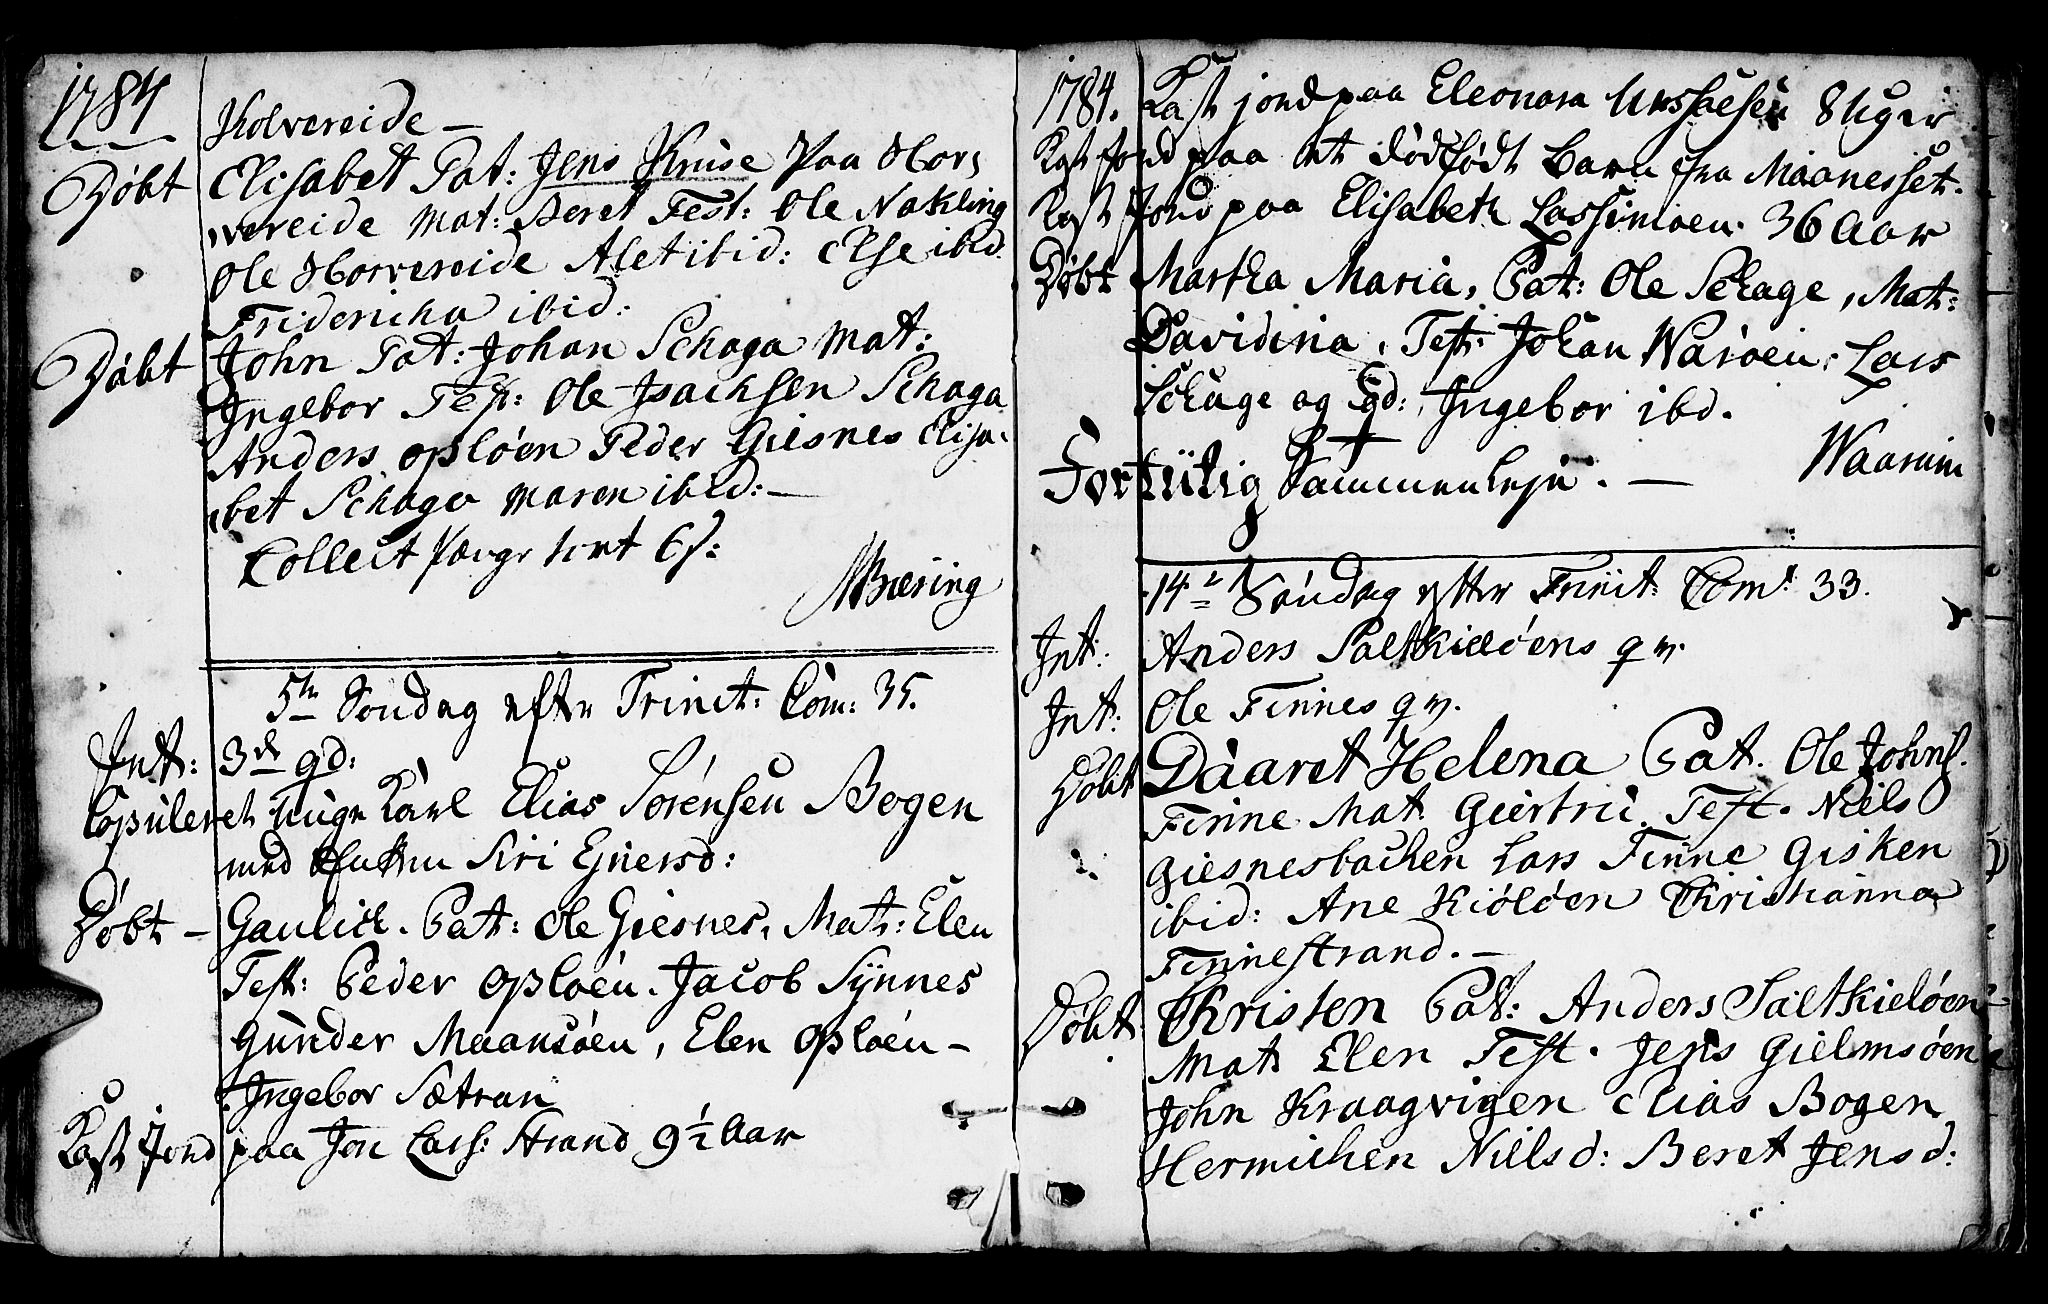 1784
Kolvereide —
Döbt Elisabet Pat: Jens Kruse paa Hor,
vereide Mat: Beret Test: Ole Nakling
Ole Horvereide Alet ibid: Else ibid.
Fridericha ibid:
Döbt John Pat: Johan Schaga Mat:
Ingebor Test: Ole Isachsen Schaga
Anders Oplöen Peder Giesnes Elisa,
bet Schaga Maren ibid: —
Collect Penge 6 s:
Bæring
5te Söndag efter Trinit: Com: 35.
Int: 3de gd:
Copuleret unge Karl Elias Sörensen Bogen
med Siri Ejnersd:
Döbt — Gaulich. Pat: Ole Giesnes, Mat: Elen
Test: Peder Oploen. Jacob Synnes
Gunder Maansöen, Elen Oploen —
Ingebor Sætran
Kast Jord paa Jon Lars: Strand 9 1/2 Aar
1784. Kast jord paa Eleonora 8 Uger
Kast jord paa et dödfödt Barn fra Maanesset.
Kast Jord paa Elisabeth Lassemoen. 36 Aar
Döbt Martha Maria, Pat: Ole Schage, Mat:
Davidina, Test: Johan Waröen, Lars
Schage og gd: Ingebor ibd.
Fortiilig Sammenleje. —
Waarum
14de Söndag efter Triniit: Com: 33.
Int: Anders Saltkiellöens q m.
Int: Ole Finnes q m.
Döbt Daaret Helena Pat. Ole Johns.
Finne Mat. Giertru. Test. Niels
Giesnesbachen Lars Finne Gisken
ibid: Ane Kiölöen Christianna
Finnestrand. —
Döbt Christen Pat: Anders Saltkielöen
Mat. Elen Test. Jens Gielmsöen
John Kraagvigen Elias Bogen
Hermichen Nielsd: Beret Jensd: